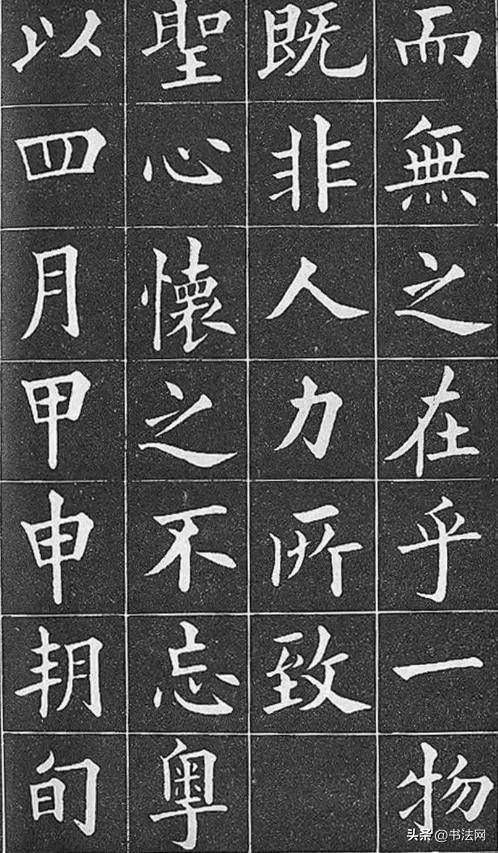 而無之在乎一物
既非人力所致
聖心懐之不忘粵
以四月甲申朔旬
头条 @书法网